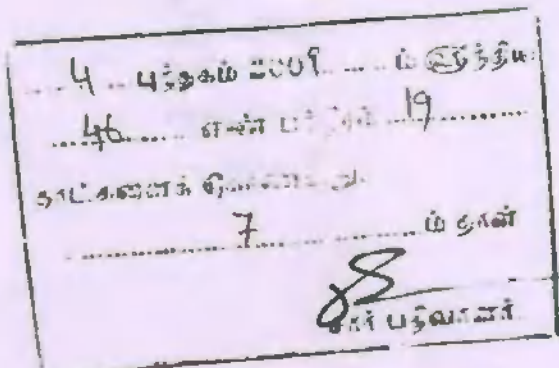 4 புத்தகம் 2009 ம் ஆண்டு
46 எண் 19
தாட்களைக் கொண்டது
7 ம் தாள்
சார் பதிவாளர்